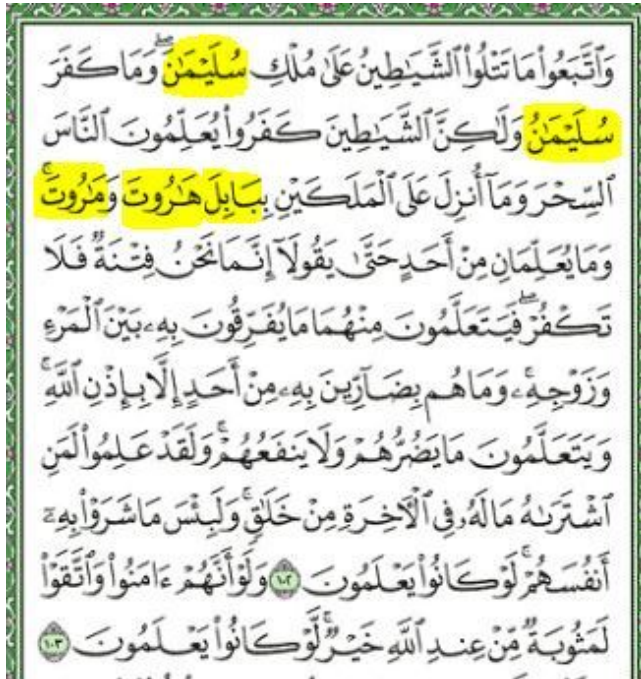 وَٱتَّبَعُوا۟ مَا تَتْلُوا۟ ٱلشَّيَٰطِينُ عَلَىٰ مُلْكِ سُلَيْمَٰنَ ۖ وَمَا كَفَرَ
سُلَيْمَٰنُ وَلَٰكِنَّ ٱلشَّيَٰطِينَ كَفَرُوا۟ يُعَلِّمُونَ ٱلنَّاسَ
ٱلسِّحْرَ وَمَآ أُنزِلَ عَلَى ٱلْمَلَكَيْنِ بِبَابِلَ هَٰرُوتَ وَمَٰرُوتَ ۚ
وَمَا يُعَلِّمَانِ مِنْ أَحَدٍ حَتَّىٰ يَقُولَآ إِنَّمَا نَحْنُ فِتْنَةٌ فَلَا
تَكْفُرْ ۖ فَيَتَعَلَّمُونَ مِنْهُمَا مَا يُفَرِّقُونَ بِهِۦ بَيْنَ ٱلْمَرْءِ
وَزَوْجِهِۦ ۚ وَمَا هُم بِضَآرِّينَ بِهِۦ مِنْ أَحَدٍ إِلَّا بِإِذْنِ ٱللَّهِ ۚ
وَيَتَعَلَّمُونَ مَا يَضُرُّهُمْ وَلَا يَنفَعُهُمْ ۚ وَلَقَدْ عَلِمُوا۟ لَمَنِ
ٱشْتَرَىٰهُ مَا لَهُۥ فِى ٱلْءَاخِرَةِ مِنْ خَلَٰقٍ ۚ وَلَبِئْسَ مَا شَرَوْا۟ بِهِۦٓ
أَنفُسَهُمْ ۚ لَوْ كَانُوا۟ يَعْلَمُونَ ١٠٢ وَلَوْ أَنَّهُمْ ءَامَنُوا۟ وَٱتَّقَوْا۟
لَمَثُوبَةٌ مِّنْ عِندِ ٱللَّهِ خَيْرٌ ۖ لَّوْ كَانُوا۟ يَعْلَمُونَ ١٠٣